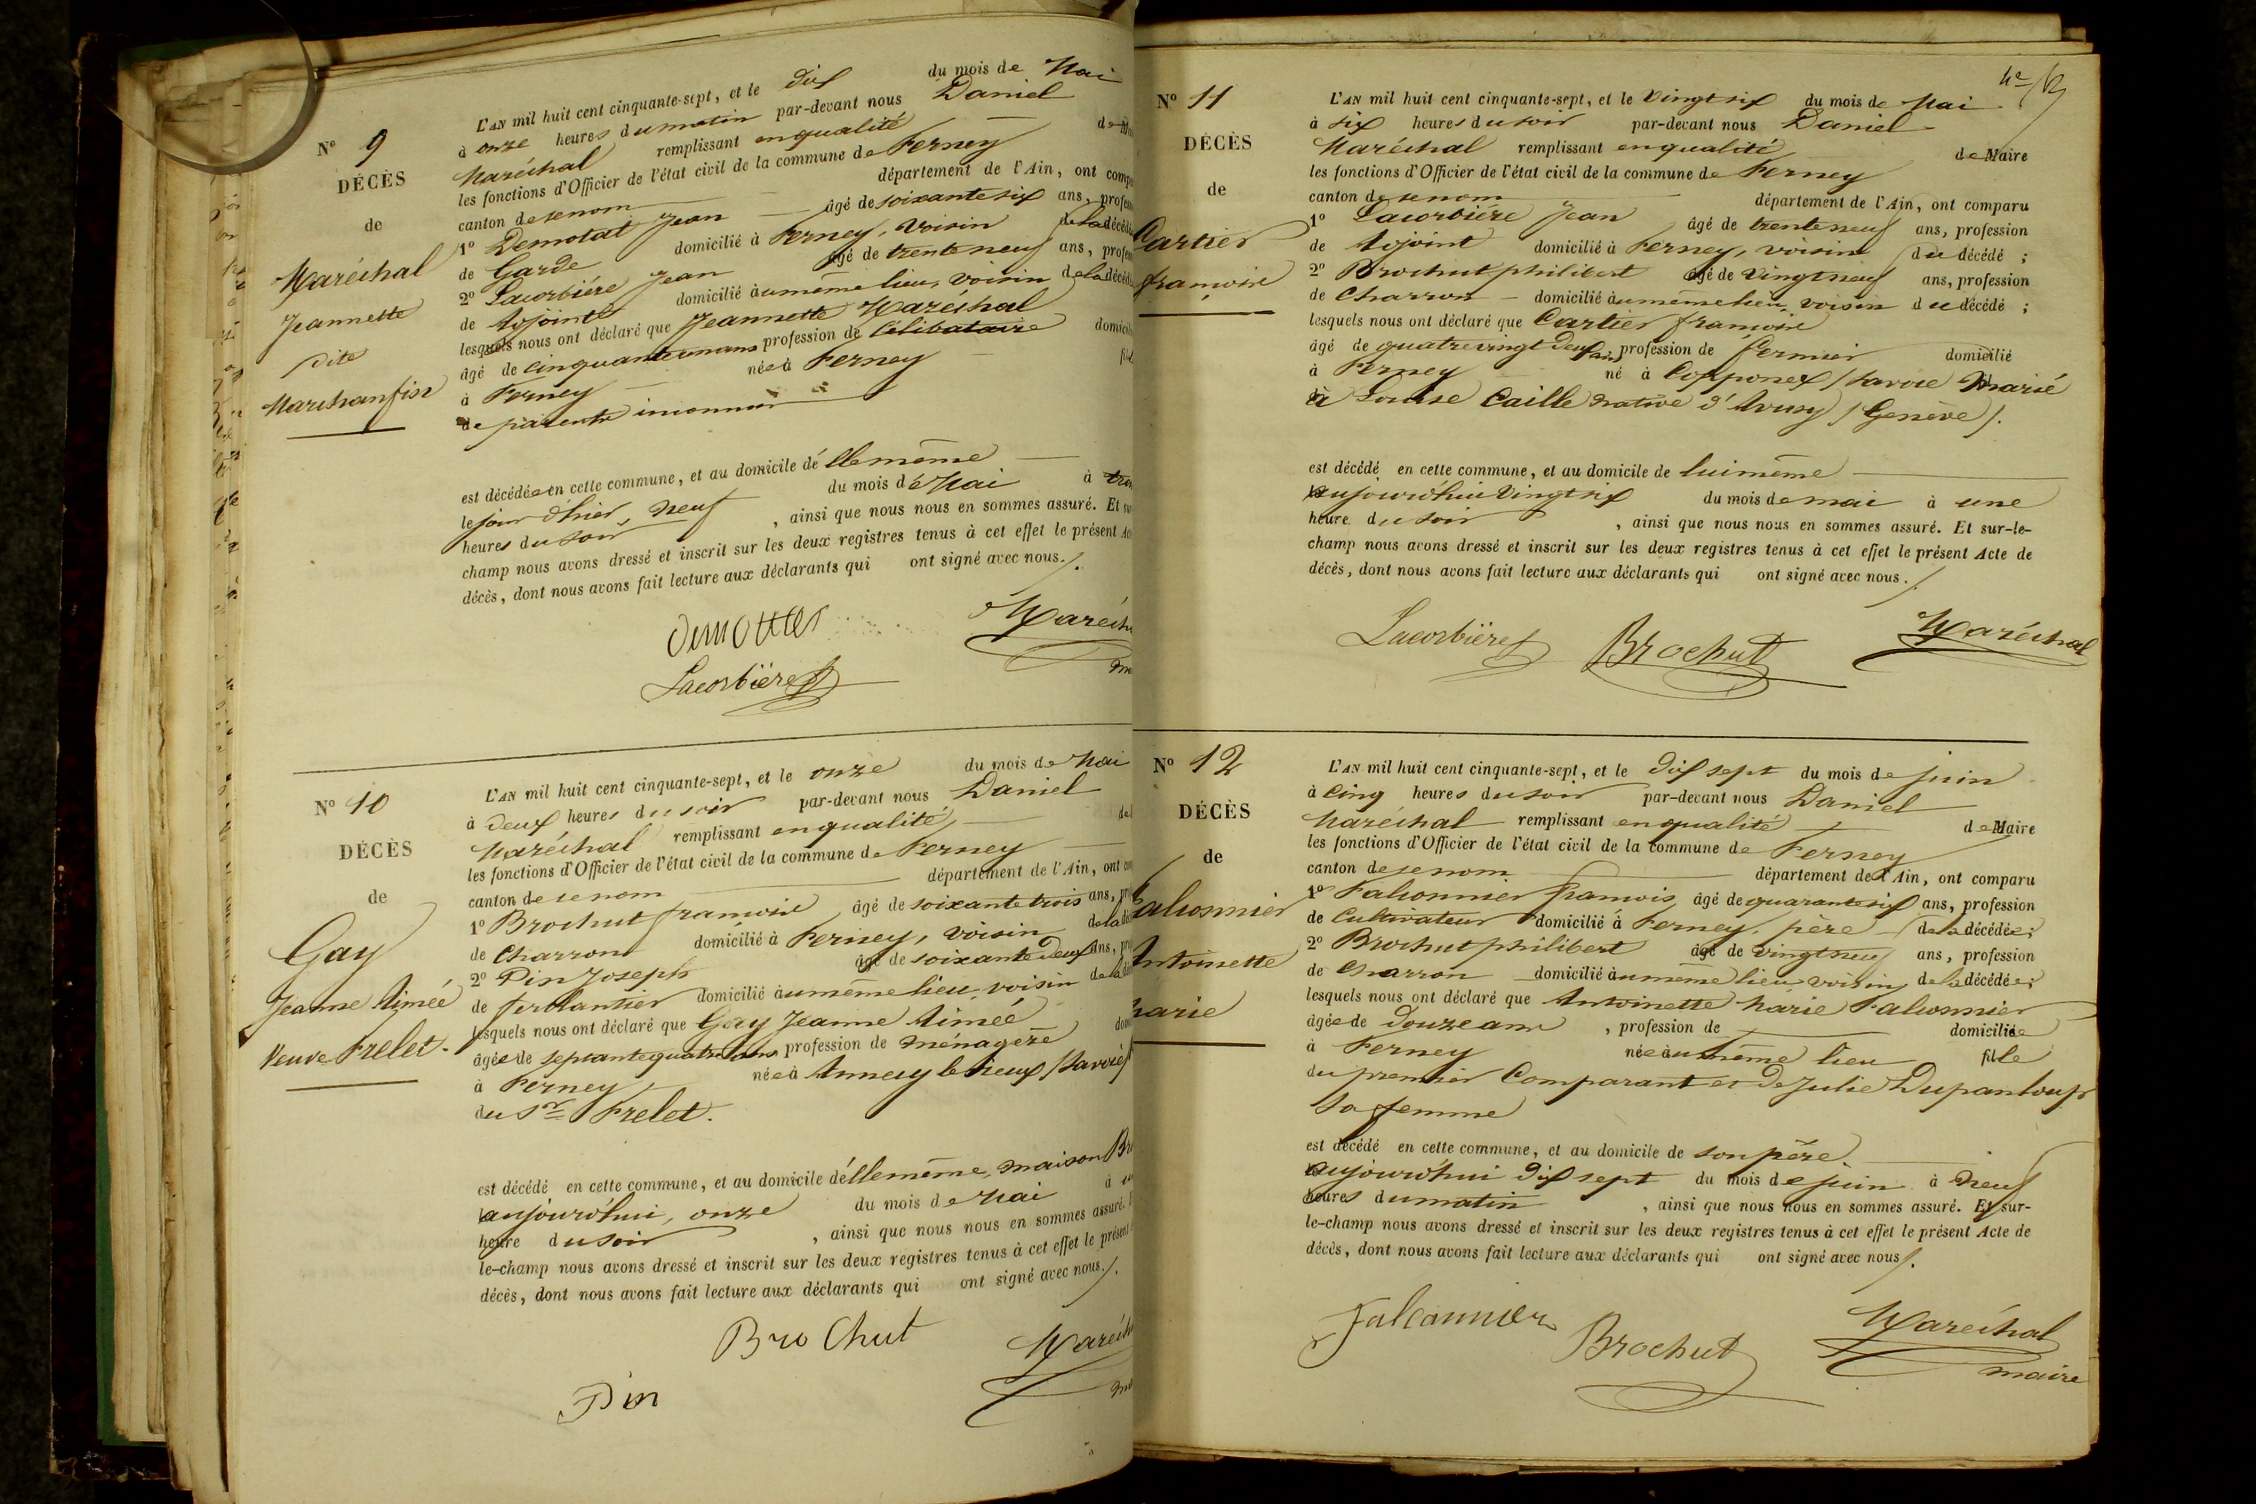 N° 9
DÉCÈS
de
Maréchal
Jeannette
dite
Marchanfin
L'AN mil huit cent cinquante-sept, et le dix du mois de Mai
à onze heures du matin par-devant nous Daniel
Maréchal remplissant en qualité de
les fonctions d'Officier de l'état civil de la commune de Ferney
canton de ce nom département de l'Ain, ont
1° Demotat Jean âgé de soixante six ans,
de Garde domicilié à Ferney, voisin de la
2° Lacorbière Jean âgé de trente neuf ans,
de Adjoint domicilié au même lieu, voisin de la
lesquels nous ont déclaré que Jeannette Maréchal
âgé de cinquante un ans profession de Célibataire
à Ferney née à Ferney
de parents inconnus
est décédée en cette commune, et au domicile d'elle même
le jour d'hier, neuf du mois de Mai à
heures du soir , ainsi que nous nous en sommes assuré. Et
champ nous avons dressé et inscrit sur les deux registres tenus à cet effet le présent
décès, dont nous avons fait lecture aux déclarants qui ont signé avec nous./.
Lacorbière
N° 10
DÉCÈS
de
Gay
Jeanne Aimée
Veuve Frelet.
L'AN mil huit cent cinquante-sept, et le onze du mois de Mai
à deux heures du soir par-devant nous Daniel
Maréchal remplissant en qualité
les fonctions d'Officier de l'état civil de la commune de Ferney
canton de ce nom département de l'Ain, ont
1° Brochut françois âgé de soixante trois ans,
de Charron domicilié à Ferney, voisin de la
2° Pin Joseph âgé de soixante deux ans,
de ferblantier domicilié au même lieu, voisin de la
lesquels nous ont déclaré que Gay Jeanne Aimée
âgée de septante quatre ans profession de ménagère
à Ferney née à Annecy le vieux (Savoie)
du Sr Frelet.
est décédé en cette commune, et au domicile d'elle même, maison
aujourd'hui, onze du mois de Mai à
heure du soir , ainsi que nous nous en sommes assuré.
le-champ nous avons dressé et inscrit sur les deux registres tenus à cet effet le présent
décès, dont nous avons fait lecture aux déclarants qui ont signé avec nous./.
Brochut
Pin
N° 11
DÉCÈS
de
Cartier
françois
L'AN mil huit cent cinquante-sept, et le vingt six du mois de Mai
à six heures du soir par-devant nous Daniel
Maréchal remplissant en qualité de Maire
les fonctions d'Officier de l'état civil de la commune de Ferney
canton de ce nom département de l'Ain, ont comparu
1° Lacorbière Jean âgé de trente neuf ans, profession
de Adjoint domicilié à Ferney, voisin du décédé ;
2° Brochut philibert âgé de vingt neuf ans, profession
de Charron domicilié au même lieu, voisin du décédé ;
lesquels nous ont déclaré que Cartier françois
âgé de quatre vingt deux ans profession de fermier domicilié
à Ferney né à Copponex (Savoie) marié
à Louise Caille native d'Avusy (Genève).
est décédé en cette commune, et au domicile de lui même
aujourd'hui vingt six du mois de mai à une
heure du soir , ainsi que nous nous en sommes assuré. Et sur-le-
champ nous avons dressé et inscrit sur les deux registres tenus à cet effet le présent Acte de
décès, dont nous avons fait lecture aux déclarants qui ont signé avec nous./
Lacorbière Brochut Maréchal
N° 12
DÉCÈS
de
Falconnier
Antoinette
Marie
L'AN mil huit cent cinquante-sept, et le dix sept du mois de juin
à cinq heures du soir par-devant nous Daniel
Maréchal remplissant en qualité de Maire
les fonctions d'Officier de l'état civil de la commune de Ferney
canton de ce nom département de l'Ain, ont comparu
1° Falconnier françois âgé de quarante six ans, profession
de Cultivateur domicilié à Ferney, père de la décédée ;
2° Brochut philibert âgé de vingt neuf ans, profession
de Charron domicilié au même lieu, voisin de la décédée ;
lesquels nous ont déclaré que Antoinette Marie Falconnier
âgée de douze ans , profession de domiciliée
à Ferney née au même lieu fille
du premier Comparant et de Julie Dupanloup
sa femme
est décédé en cette commune, et au domicile de son père
aujourd'hui dix sept du mois de juin à neuf
heures du matin , ainsi que nous nous en sommes assuré. Et sur-
le-champ nous avons dressé et inscrit sur les deux registres tenus à cet effet le présent Acte de
décès, dont nous avons fait lecture aux déclarants qui ont signé avec nous./.
Falconnier Brochut Maréchal
maire